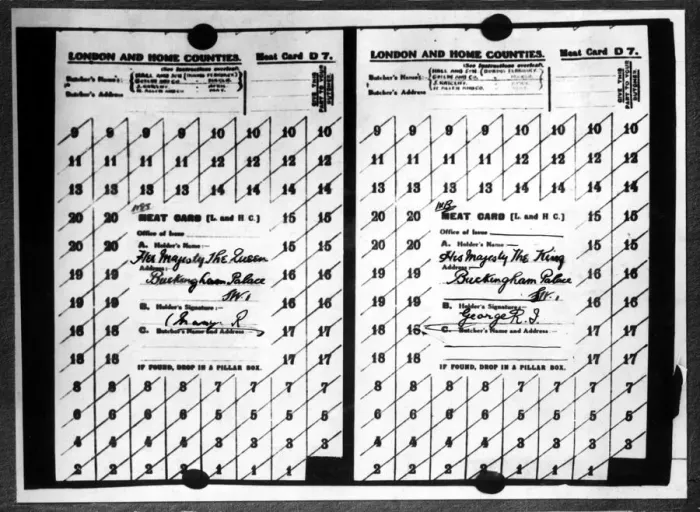 LONDON AND HOME COUNTIES. Meat Card D 7.
(See Instructions overleaf.)
Butcher's Name:
Butcher's Address
GIVE THIS PART TO YOUR
9 9 9 9 10 10 10 10
11 11 11 11 12 12 12 12
13 13 13 13 14 14 14 14
20 20 MEAT CARD [L. and H C.] 15 15
Office of Issue
20 20 A. Holder's Name:— 15 15
Her Majesty The Queen
Address:
19 19 Buckingham Palace 16 16
SW.1
19 19 B. Holder's Signature:— 16 16
Mary R
18 18 C. Butcher's Name and Address 17 17
18 18 17 17
IF FOUND, DROP IN A PILLAR BOX.
8 8 8 8 7 7 7 7
6 6 6 6 5 5 5 5
4 4 4 4 3 3 3 3
2 2 2 2 1 1 1
LONDON AND HOME COUNTIES. Meat Card D 7.
(See Instructions overleaf.)
Butcher's Name:
Butcher's Address
GIVE THIS PART TO YOUR
9 9 9 9 10 10 10 10
11 11 11 11 12 12 12 12
13 13 13 13 14 14 14 14
20 20 MEAT CARD [L. and H C.] 15 15
Office of Issue
20 20 A. Holder's Name:— 15 15
His Majesty The King
Address:
19 19 Buckingham Palace 16 16
SW.1
19 19 B. Holder's Signature:— 16 16
George R. I.
18 18 C. Butcher's Name and Address 17 17
18 18 17 17
IF FOUND, DROP IN A PILLAR BOX.
8 8 8 8 7 7 7 7
6 6 6 6 5 5 5 5
4 4 4 4 3 3 3 3
2 2 2 2 1 1 1